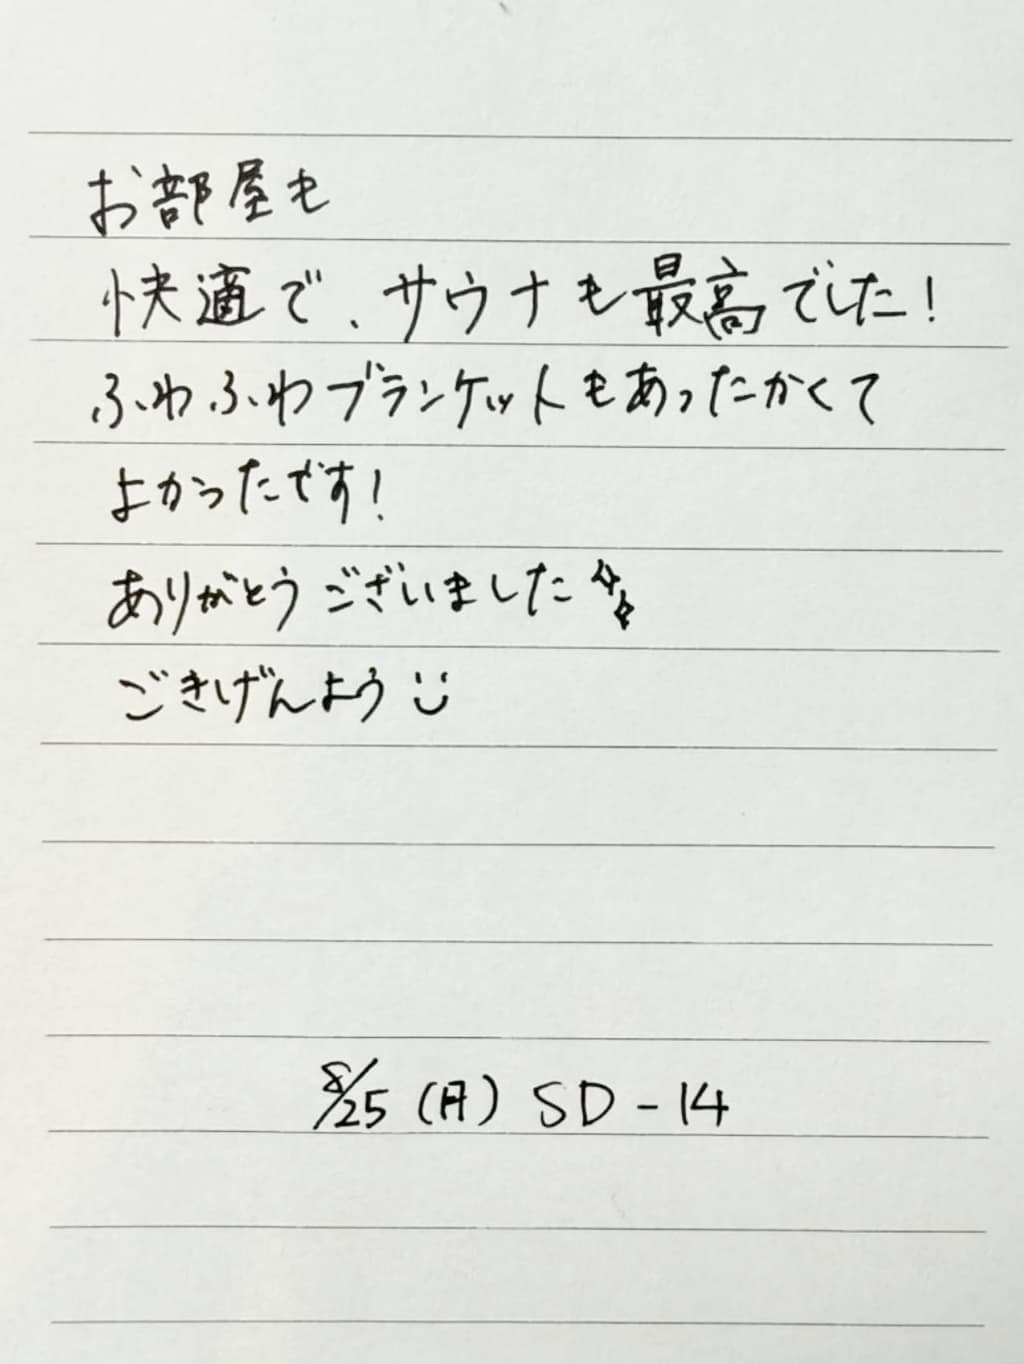 お部屋も
快適で、サウナも最高でした!
ふわふわブランケットもあったかくて
よかったです!
ありがとうございました✨
ごきげんよう☺
8/25(月) SD-14